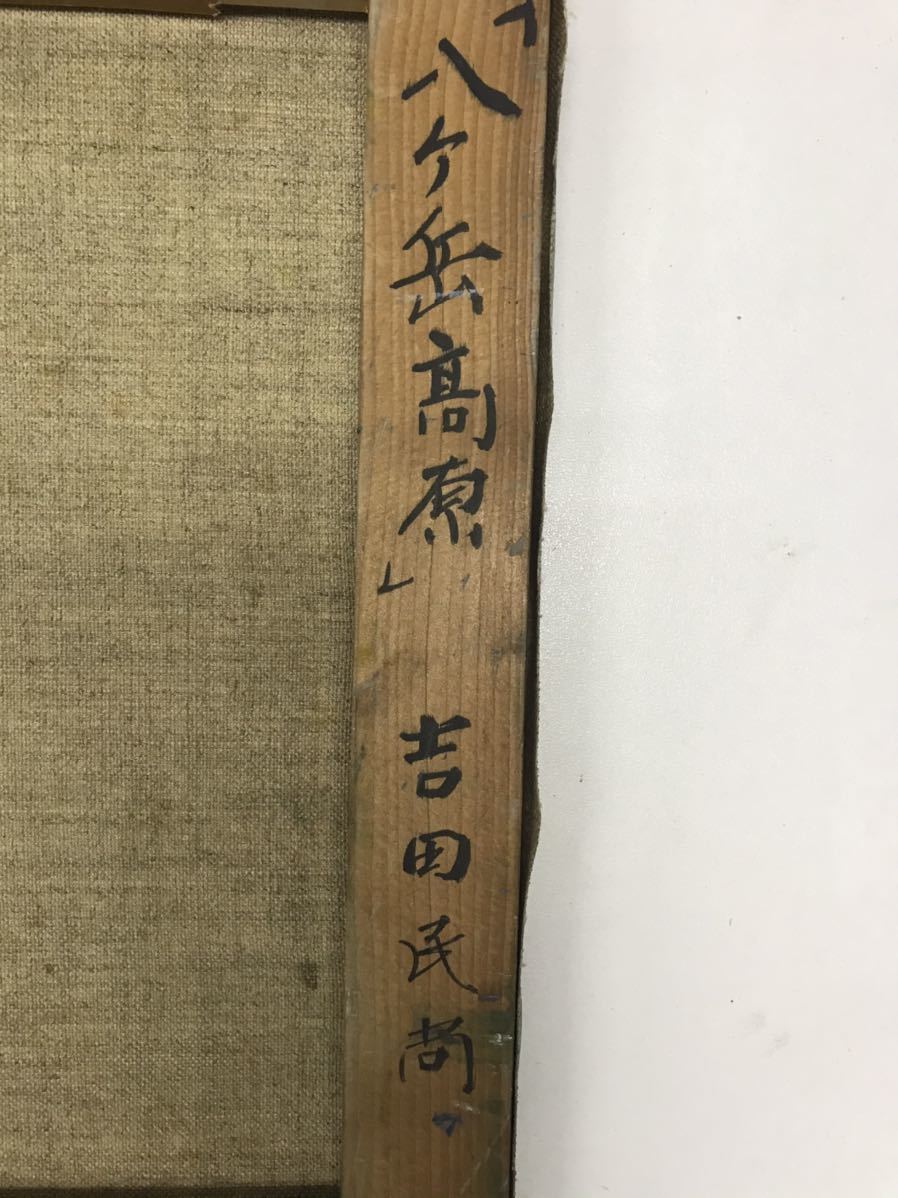 「八ヶ岳高原」 吉田民尚